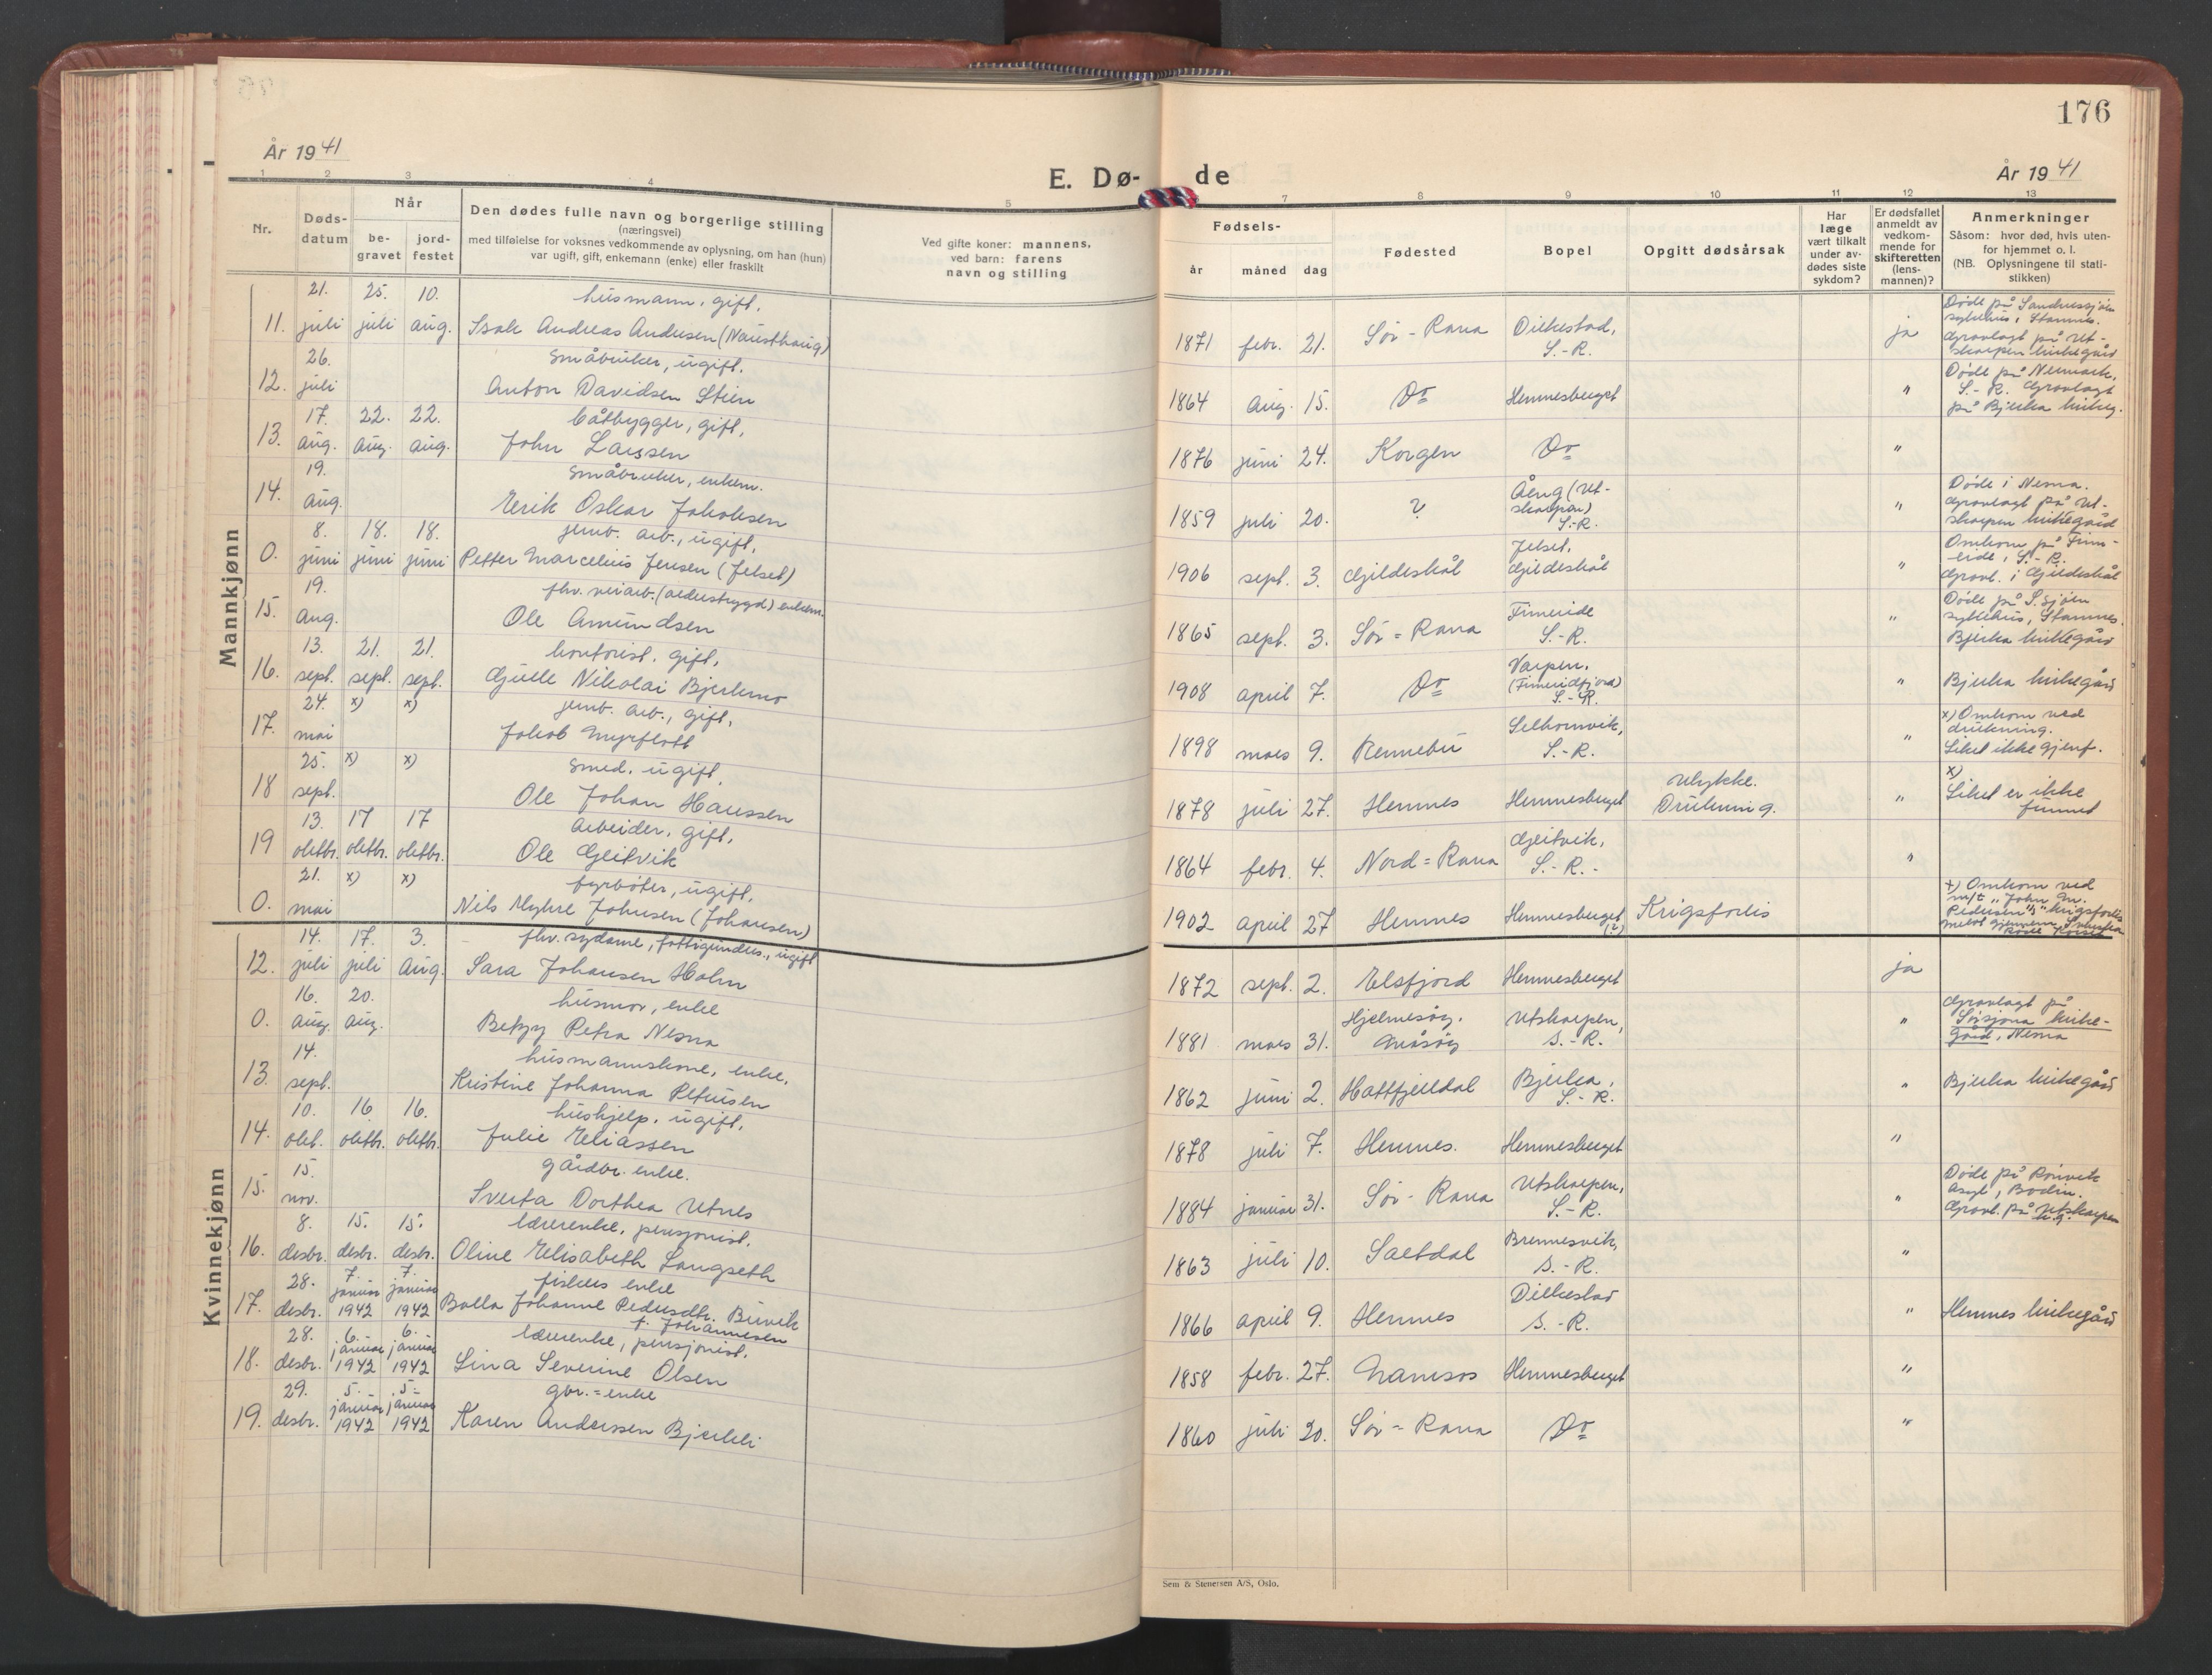 176
År 1941
E. Dø-
de
År 1941
1 2 3 4 5 7 8 9 10 11 12 13
Nr.
Døds-
datum
Når
be-
gravet
jord-
festet
Den dødes fulle navn og borgerlige stilling
(næringsvei)
med tilføielse for voksnes vedkommende av oplysning, om han (hun)
var ugift, gift, enkemann (enke) eller fraskilt
Ved gifte koner: mannens,
ved barn: farens
navn og stilling
Fødsels-
år måned dag
Fødested
Bopel
Opgitt dødsårsak
Har
læge
vært tilkalt
under av-
dødes siste
sykdom?
Er dødsfallet
anmeldt av
vedkom-
mende for
skifteretten
(lens-
mannen)?
Anmerkninger
Såsom: hvor død, hvis uten-
for hjemmet o. l.
(NB. Oplysningene til stati-
stikken)
Mannkjønn
21. 25. 10. husmann, gift.
11. juli juli aug. Isak Andreas Andersen (Nausthaug)
1871 febr. 21. Sør-Rana Dilkestad,
S.-R.
ja
Døde på Sandnessjøen
sykehus, Stamnes.
Gravlagt på Ut-
skarpen kirkegård
26. Småbruker, ugift.
12. juli Anton Davidsen Stien
1864 Aug. 15. Do Hemnesberget "
Døde på Neumark,
S.-R. Gravlagt
på Bjerka kirkeg.
17. 22. 22. båtbygger, gift,
13. aug. aug. aug. John Larssen
1876 juni 24. Korgen Do "
19. Småbruker, enkem.
14. aug. Erik Oskar Jakobsen
1859 juli 20. ? (Ut-
skarpen)
S.-R. "
Døde i Nesna.
Gravlagt på Ut-
skarpen kirkegård
8. 18. 18. jernb. arb., ugift,
0. juni juni juni Petter Marcelius Jensen (Jelset)
1906 sept. 3. Gjildeskål Jelset,
Gjildeskål "
Omkom på Finn-
eide, S.-R.
Gravl. i Gjildeskål
19. fhv. veiarb. (alderstrygd) enkem.
15. Aug. Ole Amundsen
1865 sept. 3. Sør-Rana Finneide
S.-R. "
Døde på S.sjøen
sykehus, Stamnes.
Bjerka kirkegård
13. 21. 21. kontorist, gift,
16. sept. sept. sept. Gjulle Nikolai Bjerkmo
1908 april 7. Do Varpen,
(Finneidfjord)
S.-R. "
Bjerka kirkegård
24. x) x) jernb. arb., gift,
17. mai Jakob Myrflott
1898 mars 9. Rennebu Selhornvik,
S.-R. "
x) Omkom ved
drukning.
Liket ikke gjenf.
25. x) x) smed, ugift,
18 sept. Ole Johan Hanssen
1878 juli 27. Hemnes Hemnesberget
Ulykke.
Drukning. "
x)
Liket er ikke
funnet
13. 17 17 Arbeider, gift,
19 oktbr. oktbr. oktbr. Ole Geitvik
1864 febr. 4. Nord-Rana Geitvik,
S.-R.- "
21. x) x) fyrbøter, ugift,
0. mai Nils Myhre Johnsen (Johansen)
1902 april 27 Hemnes Hemnesberget
(?)
Krigsforlis
x) Omkom ved
m/t "John M.
Pedersen"s krigsforlis
meldt gjennem Svenska
Röda Korset
Kvinnekjønn
14. 17. 3. fhv. sydame, fattigunders., ugift
12. juli juli Aug. Sara Johansen Holm
1872 sept. 2. Elsfjord Hemnesberget ja
16. 20. husmor, enke
0. Aug. Aug. Betzy Petra Nesna
1881 mars 31. Hjelmesøy,
Måsøy
Utskarpen,
S.-R. "
Gravlagt på
Sørsjona kirke-
gård, Nesna
14. husmannskone, enke,
13. sept. Kristine Johanna Petersen
1862 juni 2. Hattfjelldal Bjerka,
S.-R. "
Bjerka kirkegård
10. 16 16. hushjelp, ugift,
14. okt. oktbr. oktbr. Julie Eliassen
1878 juli 7. Hemnes. Hemnesberget "
15. gårdbr. enke.
15. nov. Sverta Dorthea Utnes
1884 januar 31. Sør-Rana Utskarpen,
S.-R. "
Døde på Rønvik
Asyl, Bodin.
Gravl. på Utskarpen
k.g.
8. 15. 15. lærerenke, pensjonist,
16. desbr. desbr. desbr. Oline Elisabeth Langseth
1863 juli 10. Saltdal Brennesvik,
S.-R. "
28. 7. 7. fiskers enke
januar januar
17. desbr. 1942 1942 Balla Johanne Pedersdtr. Buvik
f. Johannesen
1866 april 9. Hemnes Dilkestad
S.-R. "
Hemnes kirkegård
28. 6. 6. lærerenke, pensjonist.
januar januar
18. desbr. 1942 1942 Lina Severine Olsen
1858 febr. 27. Namsos Hemnesberget "
29. 5. 5. gbr.-enke
januar januar
19. desbr. 1942 1942 Karen Anderssen Bjerkli
1860 juli 20. Sør-Rana Do "
Sem & Stenersen A/S, Oslo.